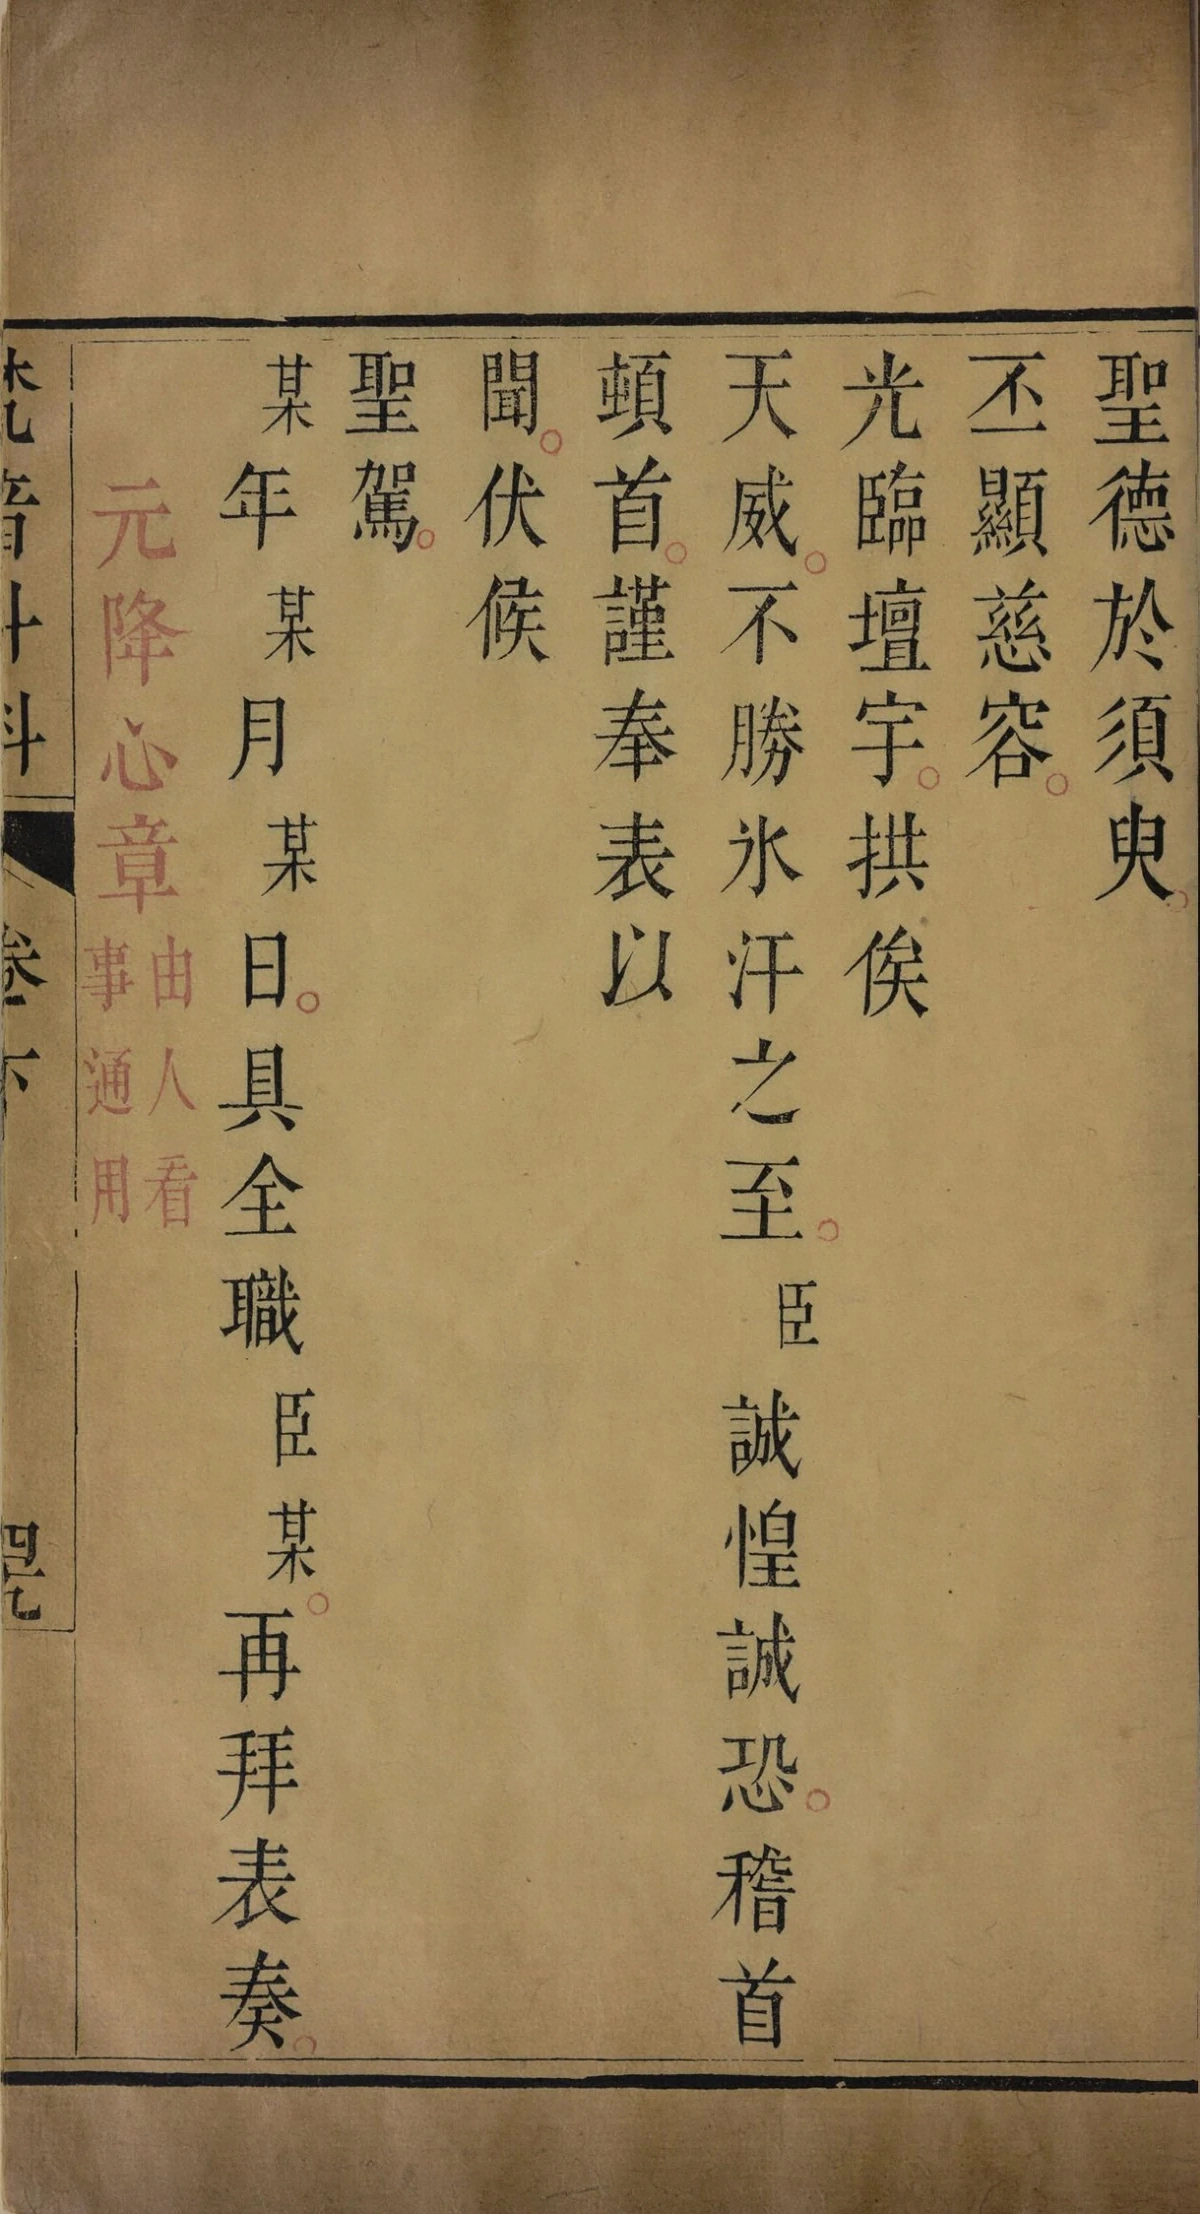 聖德於須臾。
丕顯慈容。
光臨壇宇。拱俟
天威。不勝氷汗之至。臣誠惶誠恐。稽首
頓首。謹奉表以
聞。伏候
聖駕。
某年某月某日。具全職臣某。再拜表奏。
元降心章由人看事通用
卷下